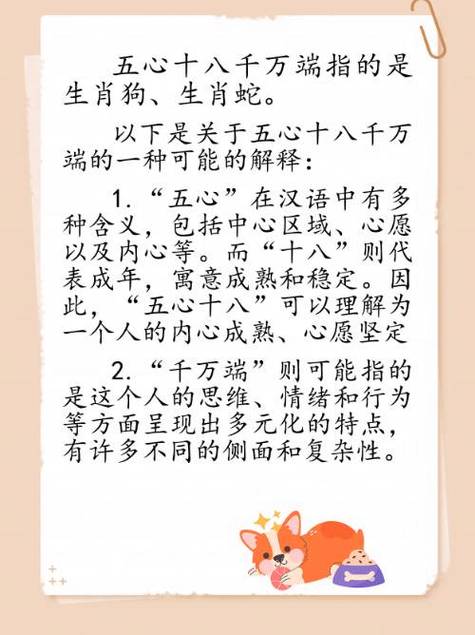 五心十八千万端指的是
生肖狗、生肖蛇。
以下是关于五心十八千万
端的一种可能的解释：
1. “五心”在汉语中有多
种含义，包括中心区域、心愿
以及内心等。而“十八”则代
表成年，寓意成熟和稳定。因
此，“五心十八”可以理解为
一个人的内心成熟、心愿坚定
2. “千万端”则可能指的
是这个人的思维、情绪和行为
等方面呈现出多元化的特点，
有许多不同的侧面和复杂性。